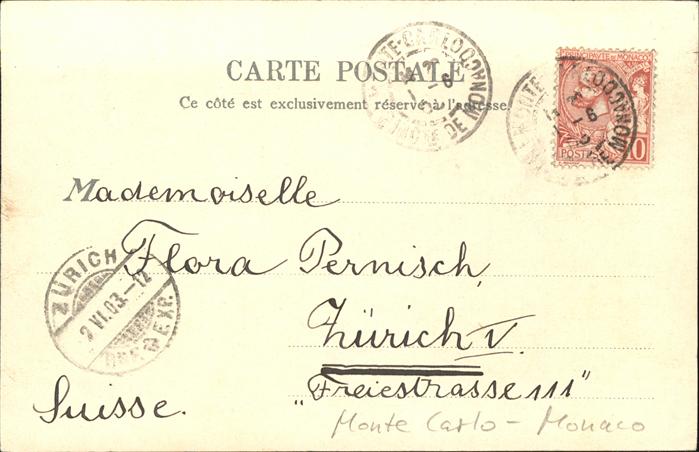 CARTE POSTALE
Ce côté est exclusivement réservé à l'adresse
PRINCIPAUTE DE MONACO
POSTES
MONTE-CARLO
DE MONACO
Mademoiselle
Flora Pernisch,
Zürich V.
"Freiestrasse 111"
Suisse.
ZÜRICH
2 VI. 03.-12
EXP.
Monte Carlo - Monaco